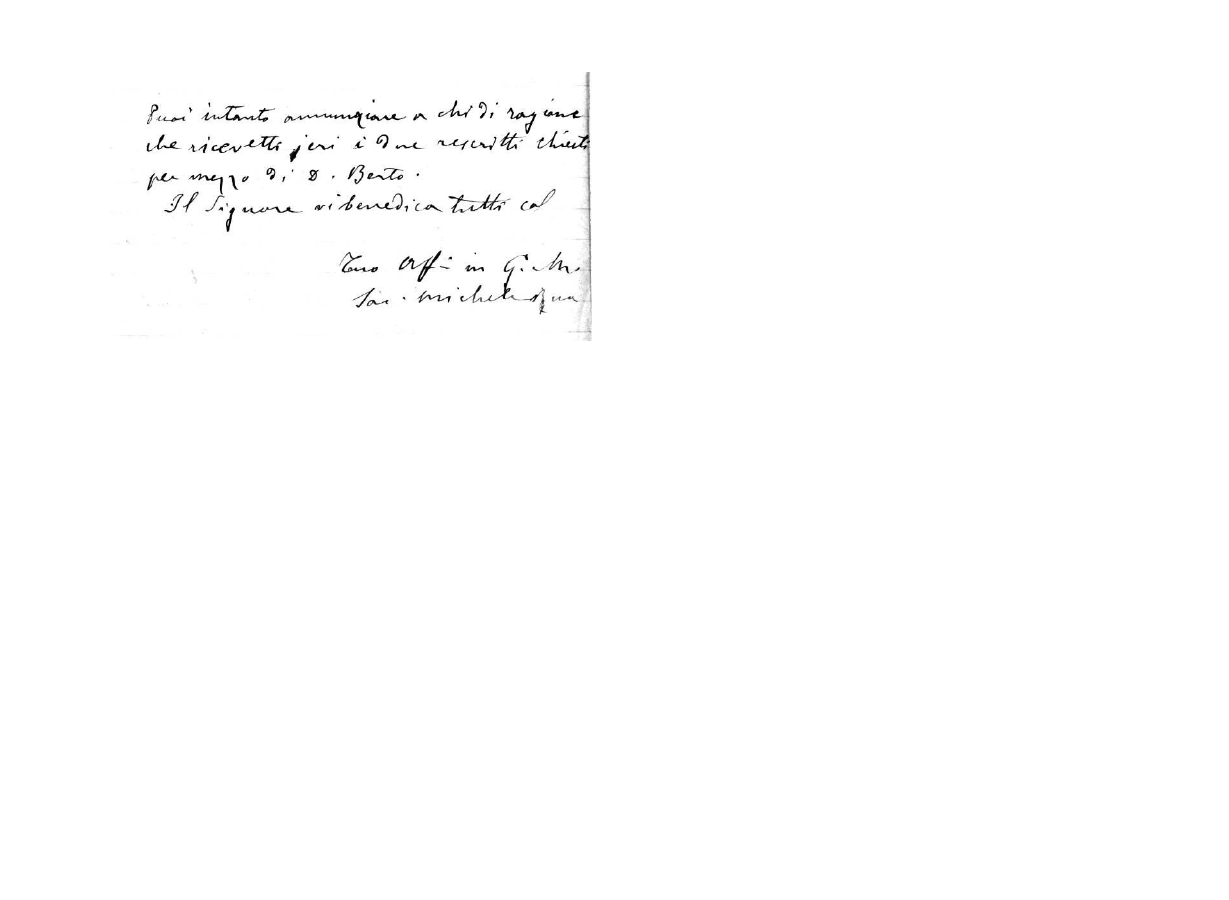 Puoi intanto annunziare a chi di ragione
che ricevetti jeri i due rescritti chiesti
per mezzo di D. Berto.
Il Signore vi benedica tutti col
Tuo Aff in G. M.
Sac. Michele Rua